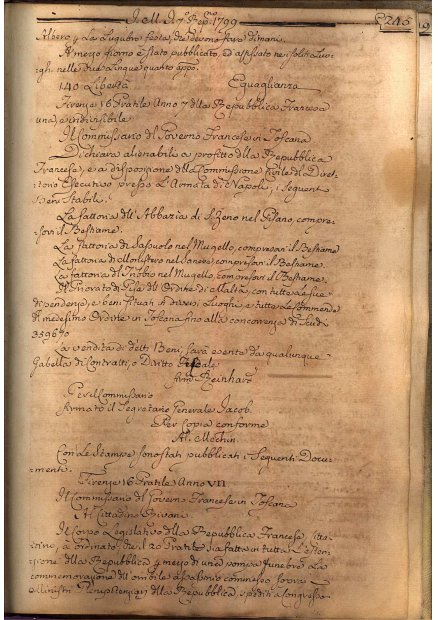 I. M. I. 7º Rep.no 1799
P. 246
Albero, e La Lugubre festa, che devono fare dimani.
A mezzo giorno è stato pubblicato, ed affissato ne' soliti Luo-
ghi nelle due Lingue quanto app.o
140 Libertà Eguaglianza
Firenze 16 Pratile Anno 7 della Repubblica Francese
una, e indivisibile
Il Commissario del Governo Francese in Toscana
Dichiara alienabili a profitto della Repubblica
Francese, e a disposizione della Commissione Civile del Diret-
torio Esecutivo presso L'Armata di Napoli, i Seguenti
Beni Stabili.
La fattoria dell'Abbazia di S. Zeno nel Pisano, compre-
sovi il Bestiame.
La fattoria di nel Mugello, compresovi il Bestiame
La fattoria di nel Sanese compresovi il Bestiame
La fattoria di nel Mugello, compresovi il Bestiame.
Il Priorato di Pisa dell'Ordine di Malta, con tutte le sue
dipendenze, e beni situati in diversi Luoghi e tutte Le Commende
del medesimo Ordine in Toscana fino alla concorrenza di Scudi
La vendita di detti Beni, sarà esente da qualunque
Gabella di Contratti, o Diritto Fiscale
Firm. Reinhard
Per il Commissario
firmato il Segretario Generale Jacob.
Per Copia conforme
Al. Mechin.
Con Le Stampe sono stati pubblicati i Seguenti Docu-
menti.
Firenze 16 Pratile Anno VII
Il Commissario del Governo Francese in Toscana
Al Cittadino
Il Corpo Legislativo della Repubblica Francese, Citta-
dino, à ordinato, che il 20 Pratile sia fatta in tutta L'Esten-
sione della Repubblica, e mezzo di una pompa funebre La
commemorazione dell'orribile assassinio commesso sopra i
Ministri Plenipotenziari della Repubblica, spediti a Congresso